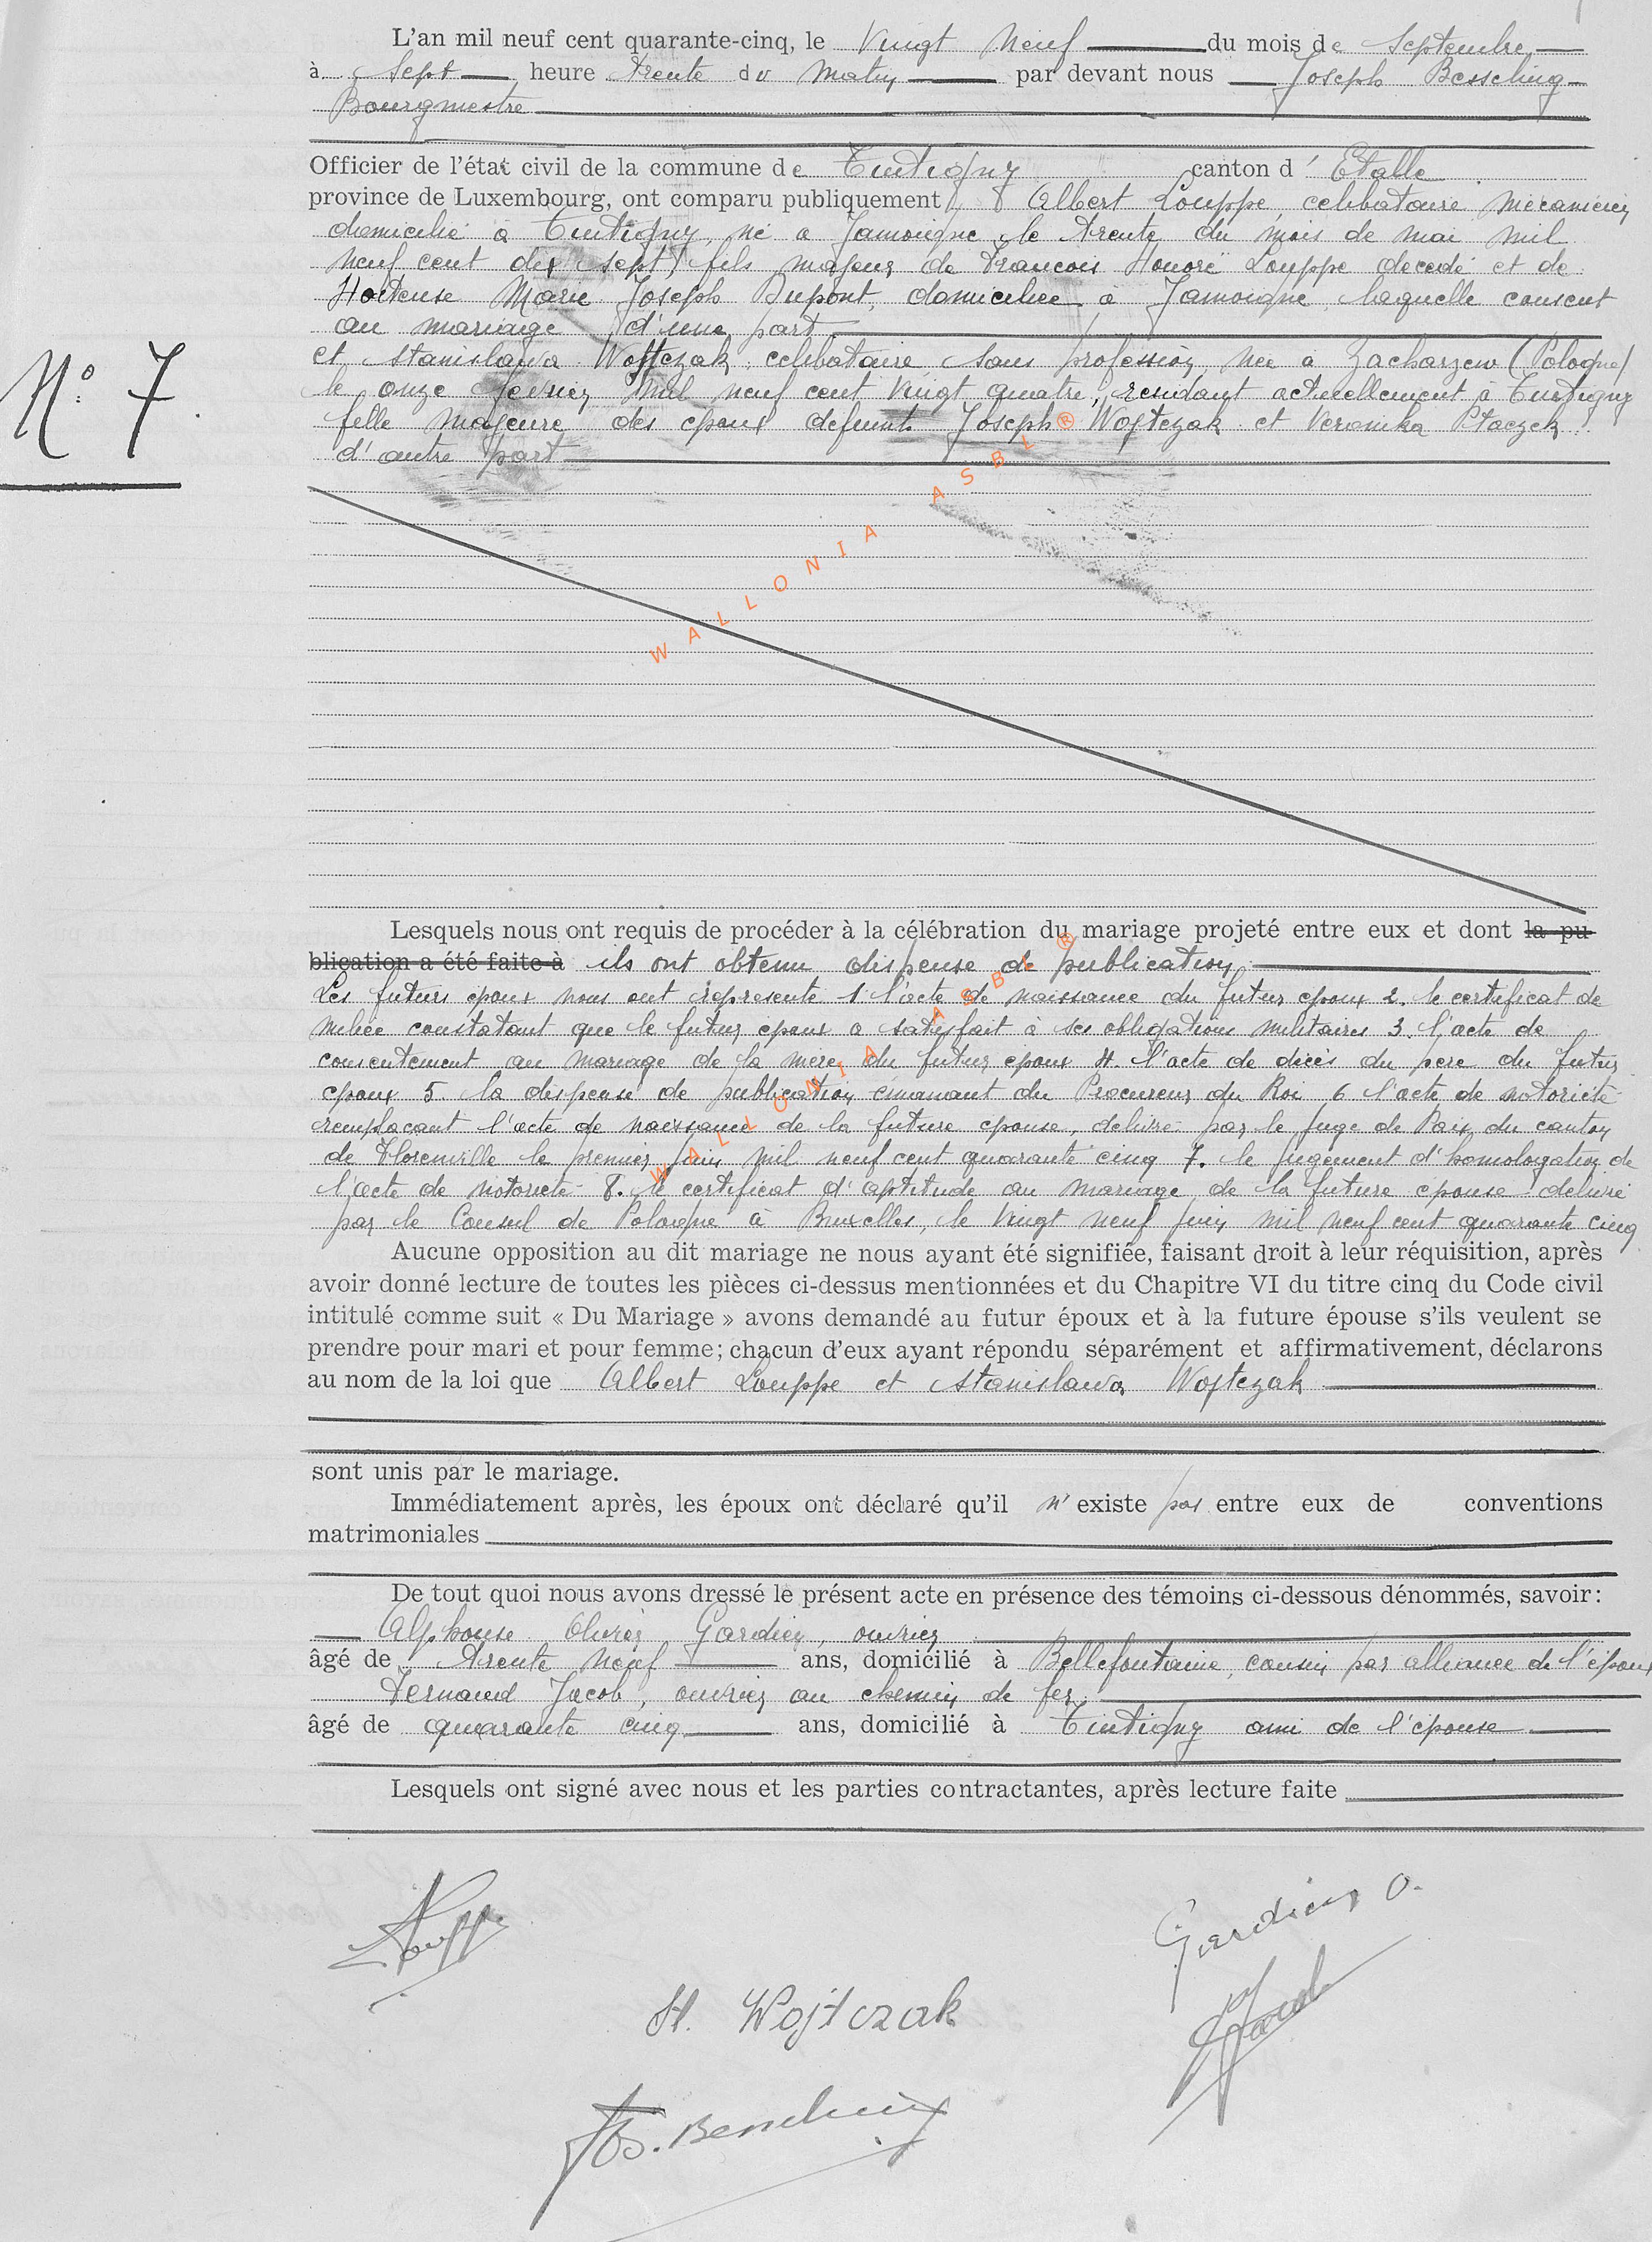 L'an mil neuf cent quarante-cinq, le Vingt Neuf du mois de Septembre
à Sept heure trente du Matin par devant nous Joseph Bessling
Bourgmestre
Officier de l'état civil de la commune de Tintigny canton d' Etalle
province de Luxembourg, ont comparu publiquement Albert Louppe, celibataire mecanicien
domicilié à Tintigny, né a Jamoigne le trente du mois de mai mil
neuf cent dix sept, fils majeur de Francois Honoré Louppe decedé et de
Hortense Marie Joseph Dupont, domiciliee à Jamoigne, laquelle consent
au mariage d'une part
N° 7.
et Stanislawa Wojtczak, celibataire, sans profession, née a Zacharzew (Pologne)
le onze fevrier mil neuf cent vingt quatre, residant actuellement à Tintigny
fille majeure des epoux defunts Joseph Wojtczak et Veronika Ptaczek
d'autre part
WALLONIA ASBL ®
Lesquels nous ont requis de procéder à la célébration du mariage projeté entre eux et dont la pu
blication a été faite à ils ont obtenu dispense de publication
Les futurs époux nous ont représenté 1. l'acte de naissance du futur epoux 2. le certificat de
milice constatant que le futur epoux a satisfait à ses obligations militaires 3. l'acte de
consentement au mariage de la mere du futur epoux 4. l'acte de décès du pere du futur
epoux 5. la dispense de publication émanant du Procureur du Roi 6 l'acte de notoriété
remplacant l'acte de naissance de la future epouse, délivré par le juge de Paix du canton
de Florenville le premier juin mil neuf cent quarante cinq 7. le jugement d'homologation de
l'acte de notoriété 8. le certificat d'aptitude au mariage de la future epouse délivré
par le Consul de Pologne à Bruxelles, le vingt neuf juin mil neuf cent quarante cinq
WALLONIA ASBL ®
Aucune opposition au dit mariage ne nous ayant été signifiée, faisant droit à leur réquisition, après
avoir donné lecture de toutes les pièces ci-dessus mentionnées et du Chapitre VI du titre cinq du Code civil
intitulé comme suit « Du Mariage » avons demandé au futur époux et à la future épouse s'ils veulent se
prendre pour mari et pour femme; chacun d'eux ayant répondu séparément et affirmativement, déclarons
au nom de la loi que Albert Louppe et Stanislawa Wojtczak
sont unis par le mariage.
Immédiatement après, les époux ont déclaré qu'il n'existe pas entre eux de conventions
matrimoniales
De tout quoi nous avons dressé le présent acte en présence des témoins ci-dessous dénommés, savoir:
Alphonse Olivier Gardien, ouvrier
âgé de trente neuf ans, domicilié à Bellefontaine, cousin par alliance de l'époux
Fernand Jacob, ouvrier au chemin de fer,
âgé de quarante cinq ans, domicilié à Tintigny ami de l'épouse
Lesquels ont signé avec nous et les parties contractantes, après lecture faite
Louppe
Gardien O.
St. Wojtczak
Jacob
Jos. Bessling